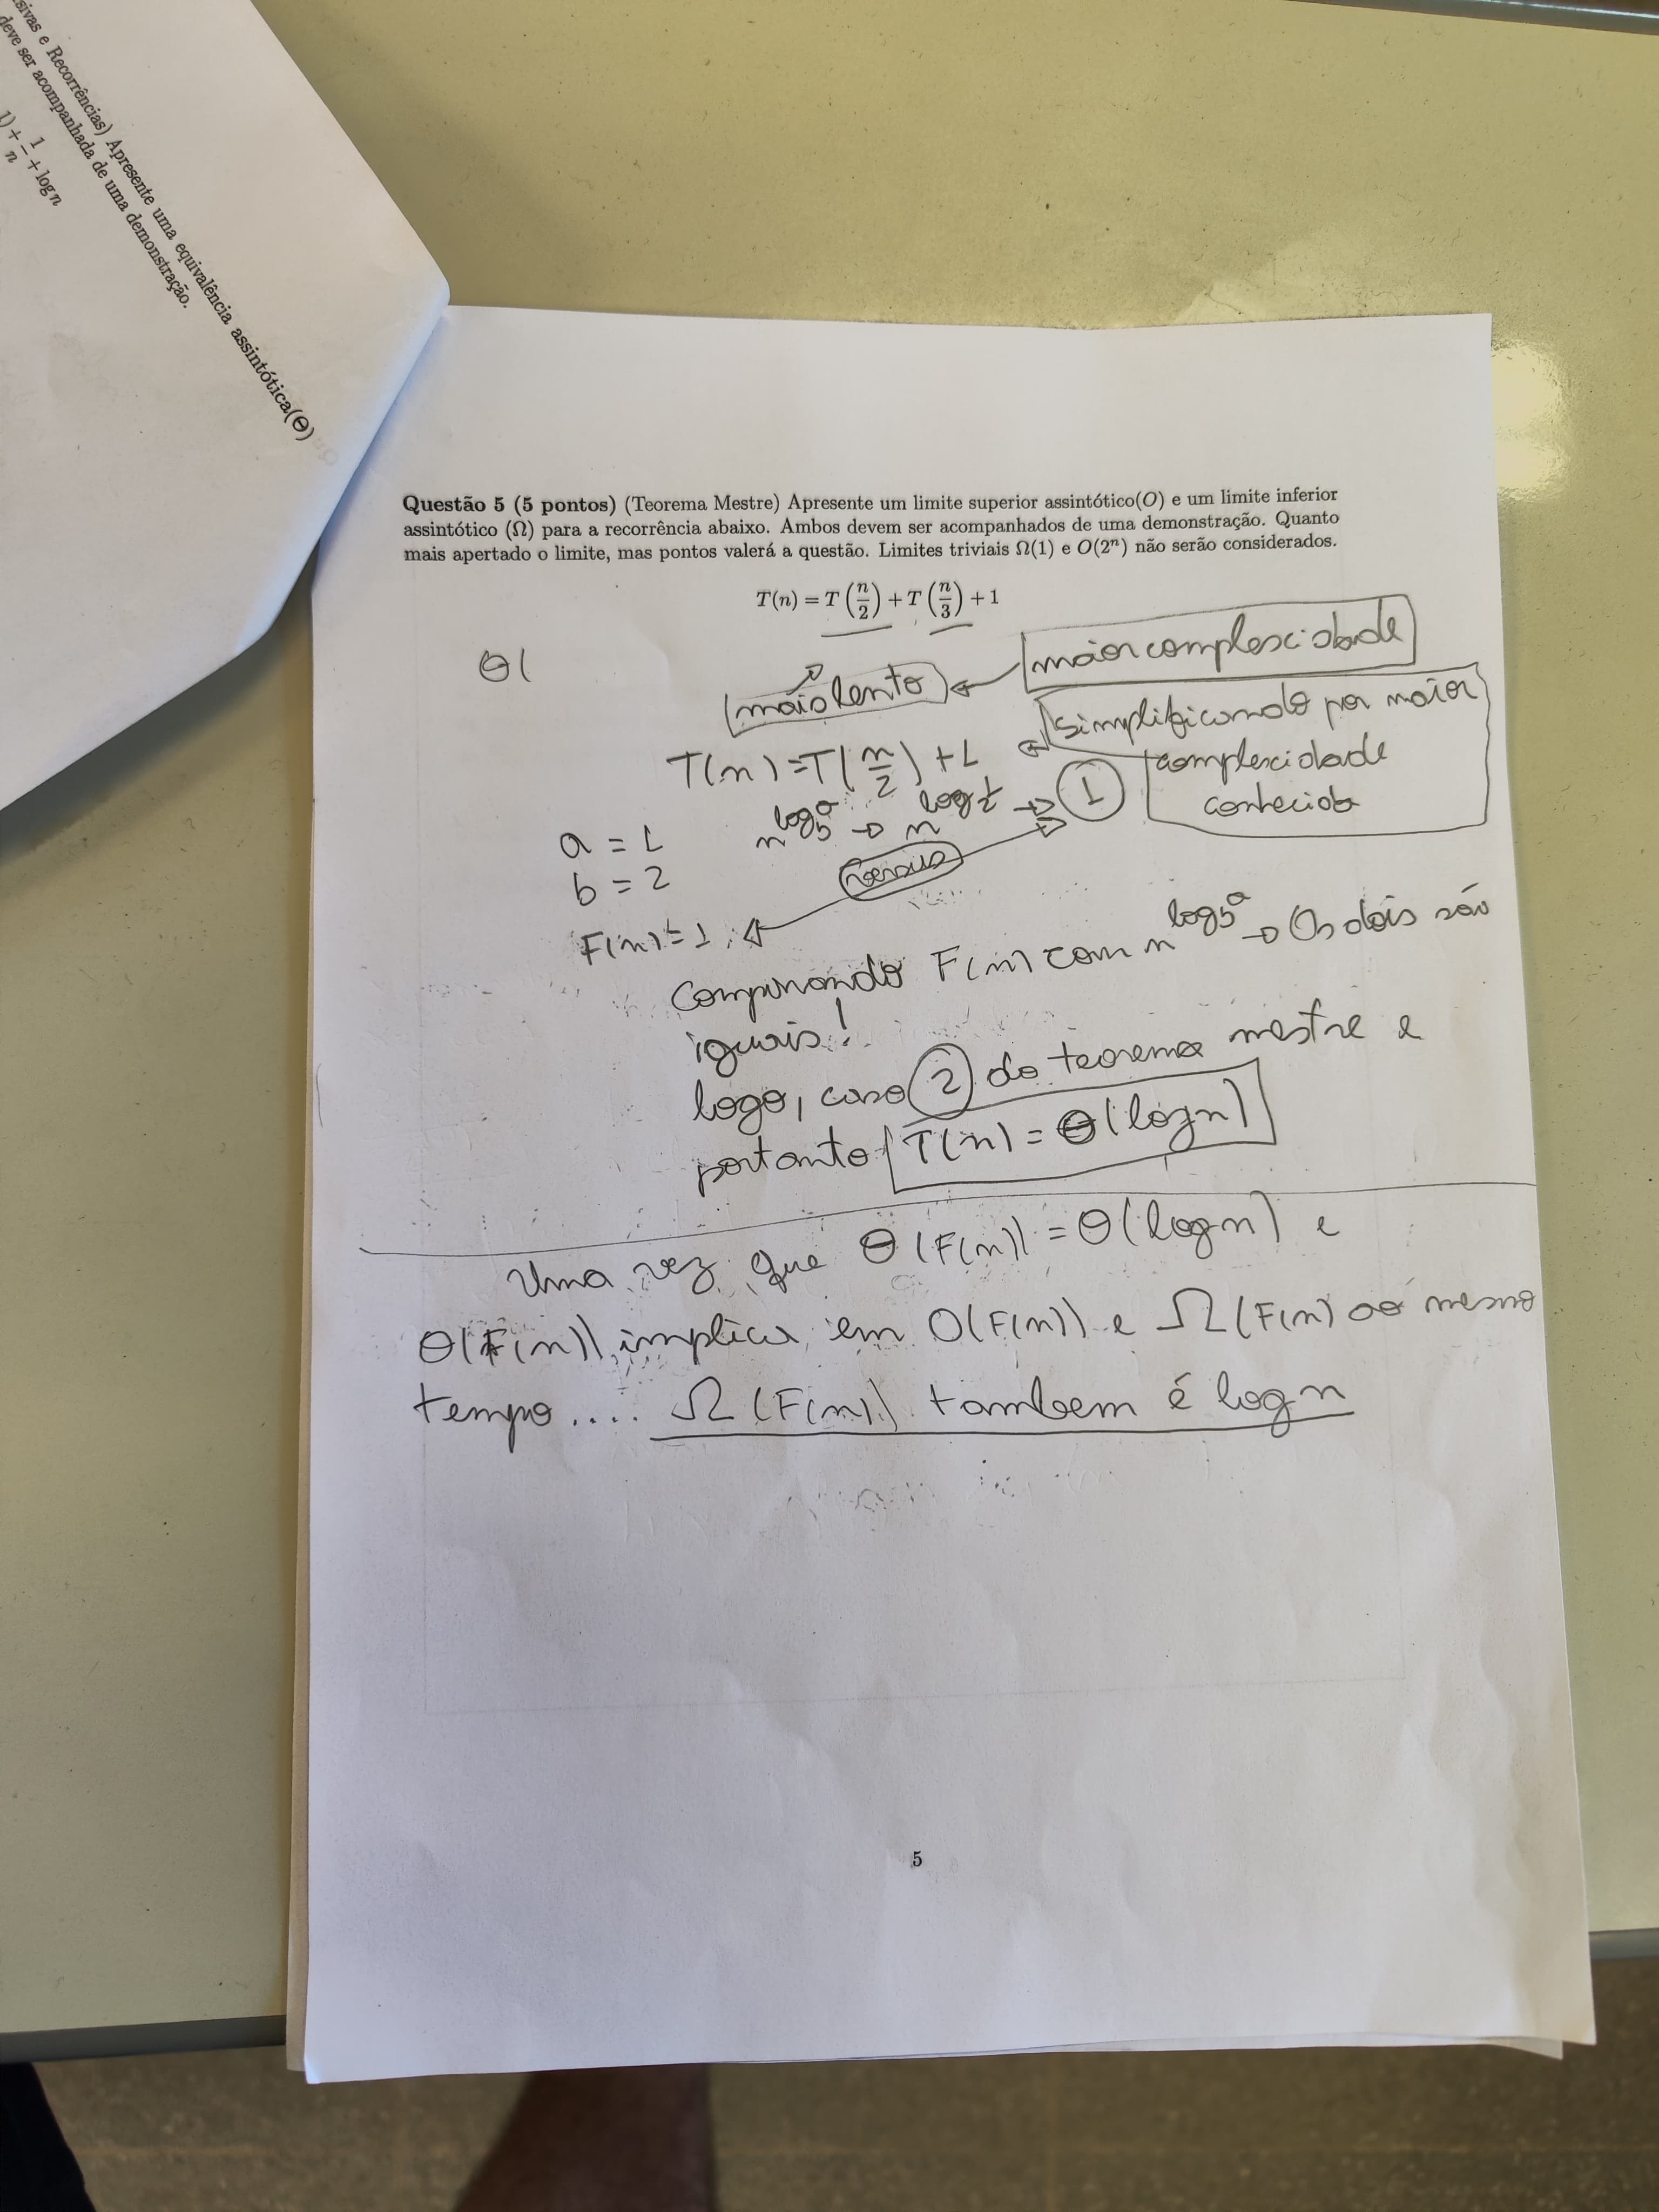 sivas e Recorrências) Apresente uma equivalência assintótica(Θ)
deve ser acompanhada de uma demonstração.
1) + 1/n + log n
Questão 5 (5 pontos) (Teorema Mestre) Apresente um limite superior assintótico(O) e um limite inferior
assintótico (Ω) para a recorrência abaixo. Ambos devem ser acompanhados de uma demonstração. Quanto
mais apertado o limite, mas pontos valerá a questão. Limites triviais Ω(1) e O(2^n) não serão considerados.
T(n) = T(n/2) + T(n/3) + 1
Θ(
maior complexidade
mais lento
simplificando por maior
complexidade
conhecida
T(n) = T(n/2) + 1
n^log_b a → n^log_2 1 → 1
a = 1
b = 2
versus
F(n) = 1
Comparando F(n) com n^log_b a → Os dois são
iguais!
logo, caso 2 do teorema mestre e
portanto T(n) = Θ(log n)
Uma vez que Θ(F(n)) = Θ(log n) e
Θ(F(n)) implica em O(F(n)) e Ω(F(n) ao mesmo
tempo.... Ω(F(n)) tambem é log n
5